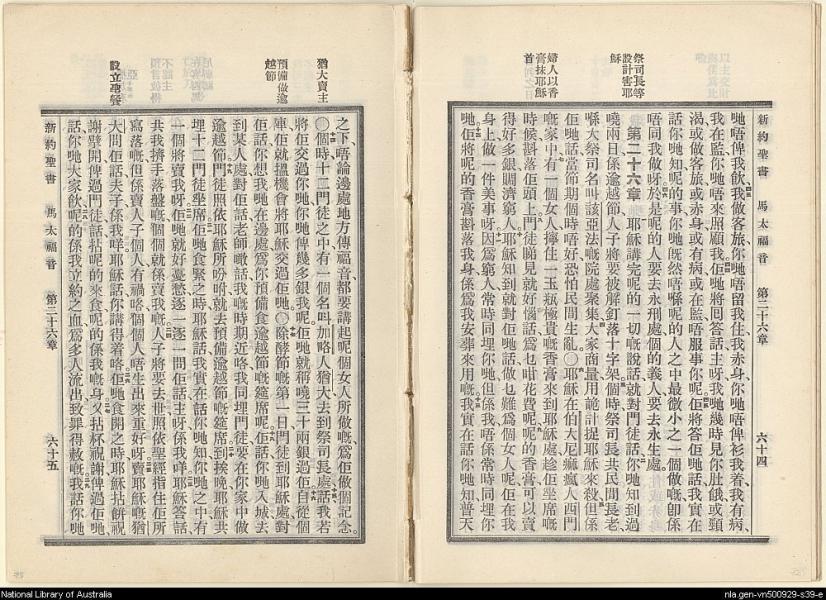 新約聖書 馬太福音 第二十六章 六十四
祭司長等
設計害耶
穌
婦人以香
膏抹耶穌
首
哋唔俾我飲、我做客旅、你哋唔留我住、我赤身、你哋唔俾衫我着、我有病、
我在監、你哋唔來照顧我、佢哋將回答話、主呀、我哋幾時見你肚餓、或頸
渴、或做客旅、或赤身、或有病、或在監、唔服事你呢、佢將答佢哋話、我實在
話你哋知、呢的事、你哋既然唔喺呢的人之中最微小之一個做嘅、卽係
唔同我做呀、於是呢的人要去永刑處、個的義人要去永生處。
第二十六章 耶穌講完呢的一切嘅說話、就對門徒話、你哋知到過
嘵兩日係逾越節、人子將要被解、釘落十字架、個時祭司長、共民間長老、
喺大祭司名叫該亞法嘅院處聚集、大家商量、用詭計捉耶穌來殺、但係
佢哋話、當節期個時唔好、恐怕民間生亂、〇耶穌在伯大尼、痲瘋人西門
嘅家中、有一個女人、擰住一玉瓶極貴嘅香膏、來到耶穌處、趁佢坐席嘅
時候、斟落佢頭上、門徒睇見就好惱、話、爲乜咁花費呢、呢的香膏可以賣
得好多銀、賙濟窮人、耶穌知到、就對佢哋話、做乜難爲個女人呢、佢在我
身上做一件美事呀、因爲窮人常時同埋你哋、但係我唔係常時同埋你
哋、佢將呢的香膏、斟落我身、係爲我安葬來用嘅、我實在話你哋知、普天
新約聖書 馬太福音 第二十六章 六十五
猶大賣主
預備做逾
越節
設立聖餐
之下、唔論邊處地方、傳福音、都要講起呢個女人所做嘅、爲佢做個記念。
〇個時十二門徒之中、有一個名叫加略人猶大、去到祭司長處、話、我若
將佢交過你哋、你哋俾幾多銀我呢、佢哋就稱嘵三十兩銀過佢、自從個
陣佢就搵機會、將耶穌交過佢哋、〇除酵節嘅第一日、門徒到耶穌處、對
佢話、你想我哋在邊處、爲你預備食逾越節嘅筵席呢、佢話、你哋入城、去
到某人處、對佢話、老師噉話、我嘅時期近咯、我同埋門徒、要在你家中做
逾越節、門徒照依耶穌所吩咐、就去預備逾越節嘅筵席、到挨晚、耶穌共
埋十二門徒坐席、佢哋食緊之時、耶穌話、我實在話你哋知、你哋之中、有
一個將賣我呀、佢哋就好憂愁、逐一逐一問佢話、主呀、係我咩、耶穌答話、
共我擠手落盤嘅個個就係賣我嘅、人子將要去世、照依聖經指住佢所
寫落嘅、但係賣人子個人有禍咯、個個人唔生出來重好呀、賣耶穌嘅猶
大問佢話、夫子、係我咩、耶穌話、你講得着咯、佢哋食開之時、耶穌拈餅、祝
謝、擘開、俾過門徒、話、拈呢的來食、呢的係我嘅身、又拈杯、祝謝、俾過佢哋、
話、你哋大家飲、呢的係我立約之血、爲多人流出、致罪得赦嘅、我話你哋
National Library of Australia
nla.gen-vn500929-s39-e